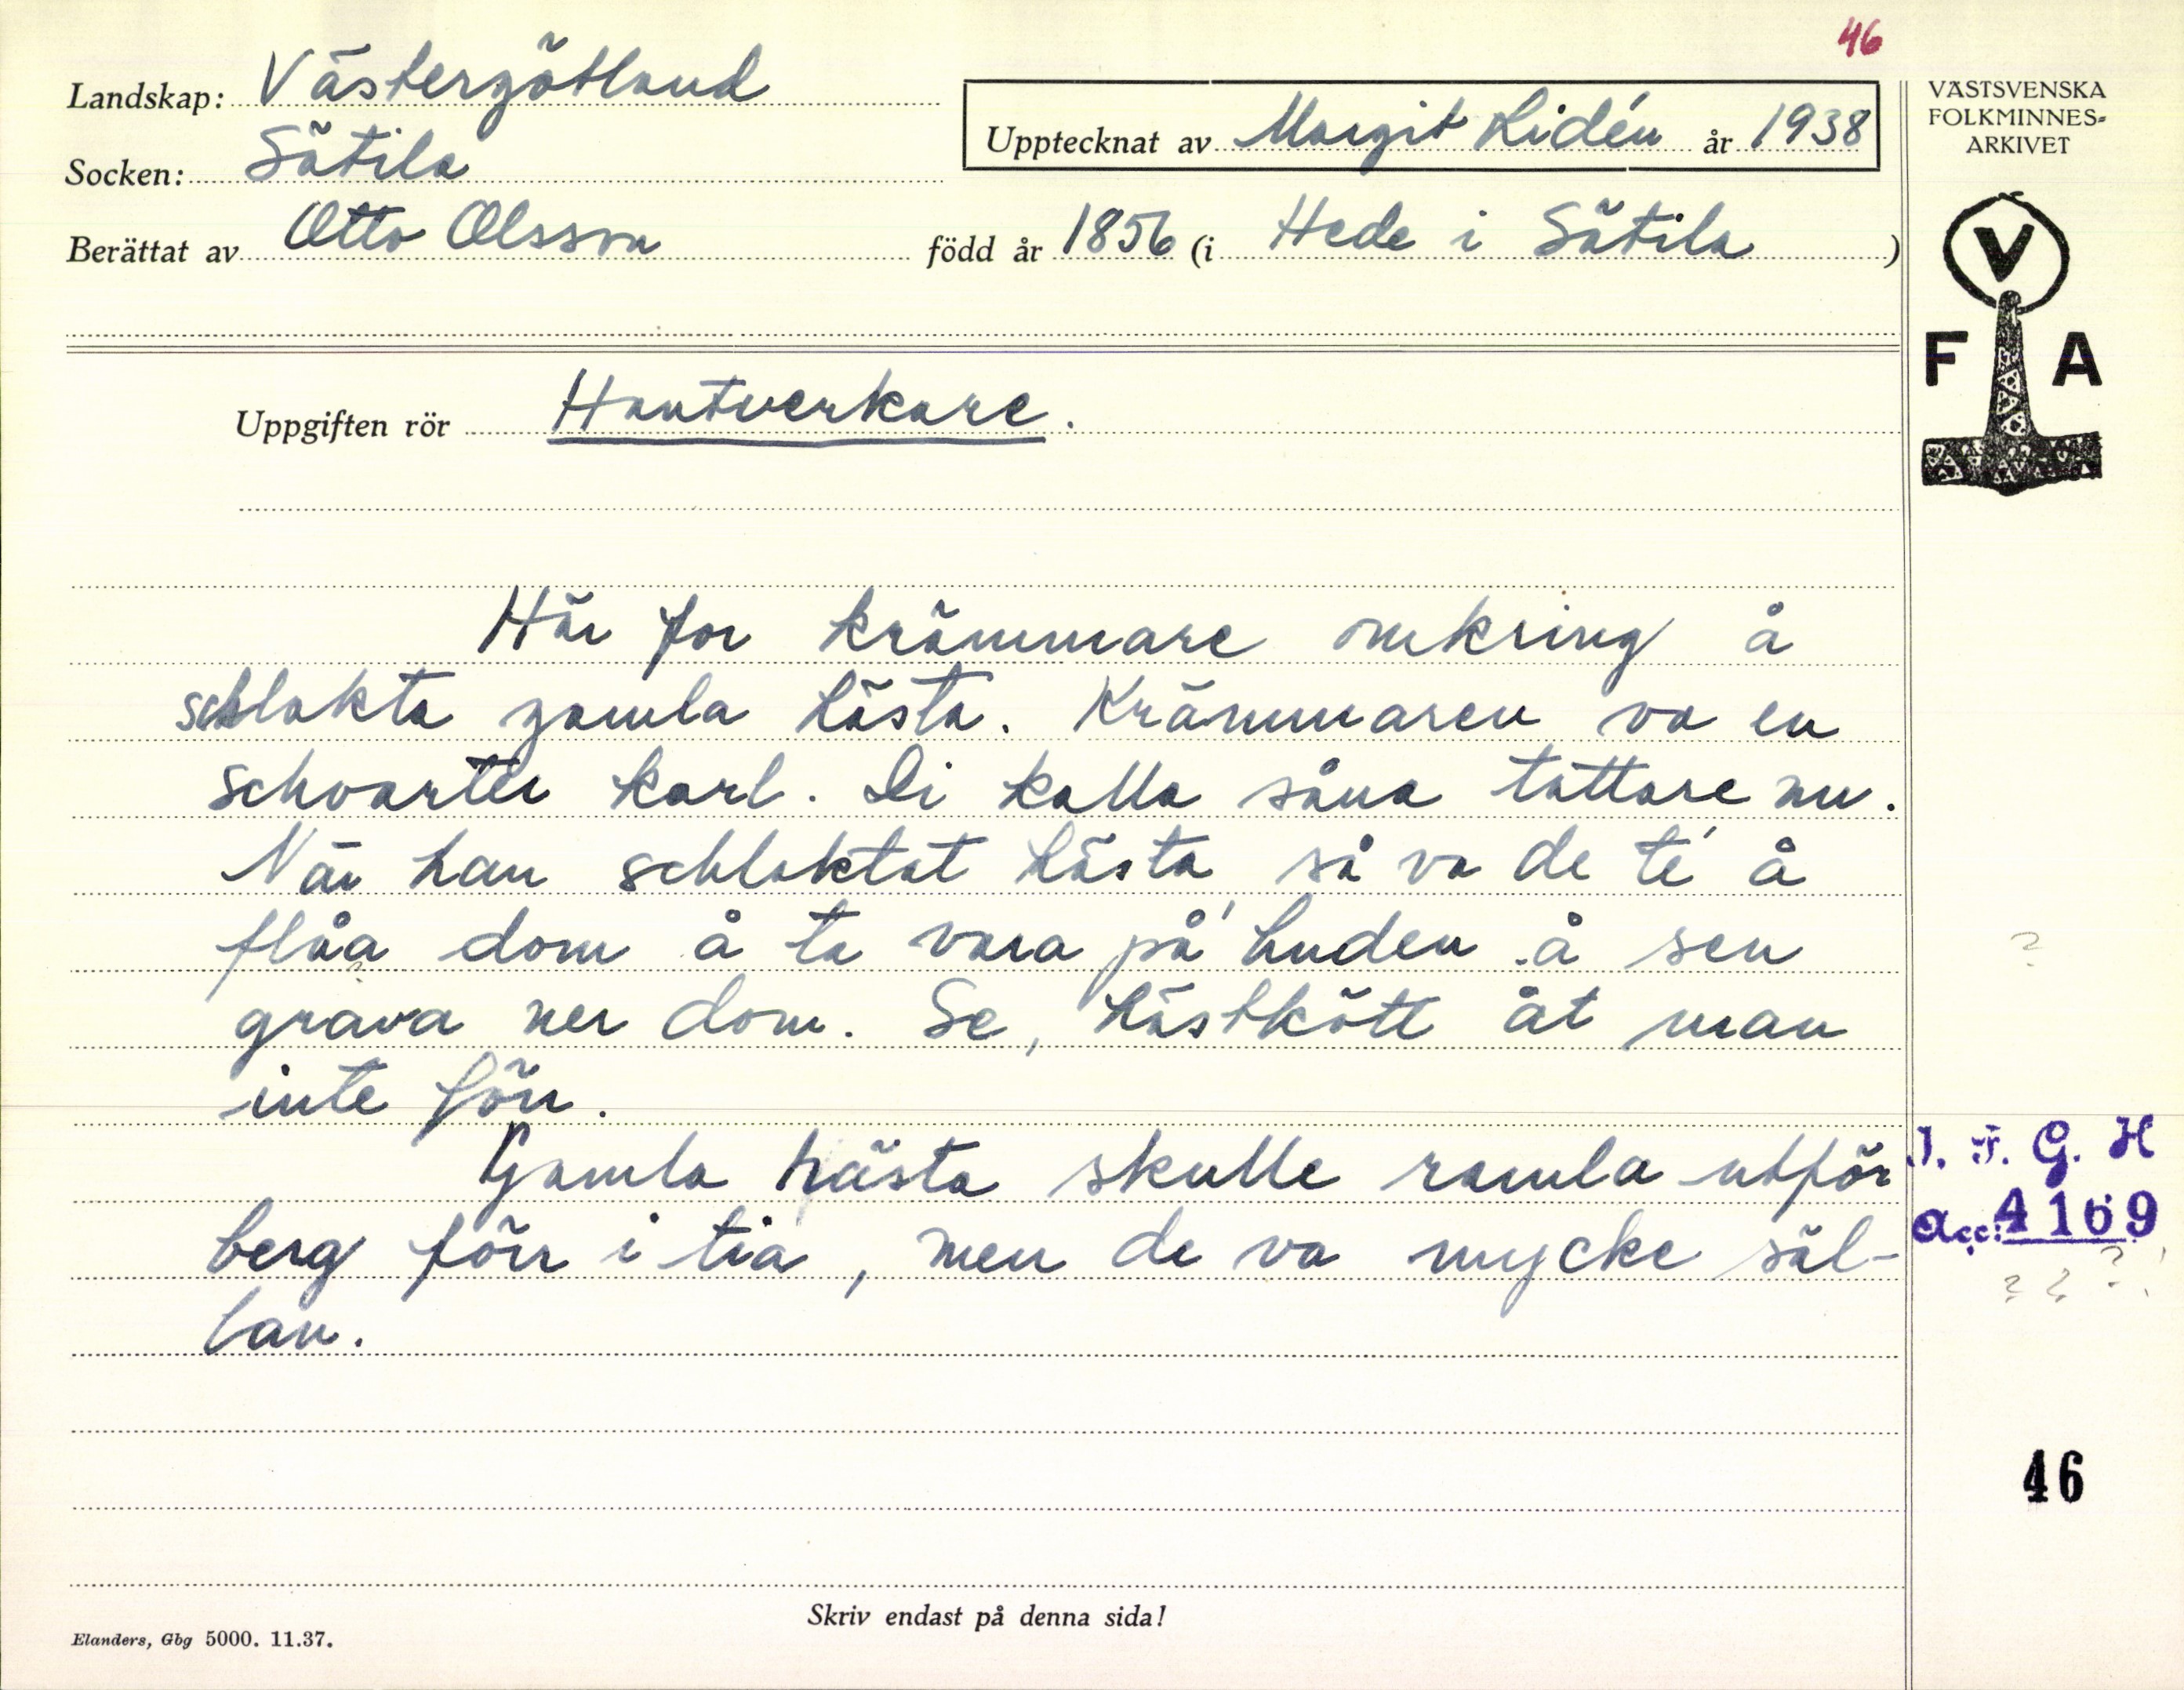 46
Landskap: Västergötland
Socken: Sätila
Berättat av Otto Olsson född år 1856 (i Hede i Sätila)
Upptecknat av Margit Lidén år 1938
VÄSTSVENSKA
FOLKMINNES=
ARKIVET
V
F A
Uppgiften rör Hantverkare.
Här for krämmare omkring å
schlakta gamla hästa. Krämmaren va en
schvarter karl. Di kalla såna tattare nu.
När han schlaktat hästa, så va de té å
flåa dom å ta vara på' huden å sen
grava ner dom. Se, hästkött åt man
inte förr.
Gamla hästa skulle ramla utför
berg förr i tia, men de va mycke säl-
lan.
I. F. G. H
Acc: 4169
46
Skriv endast på denna sida!
Elanders, Gbg 5000. 11.37.